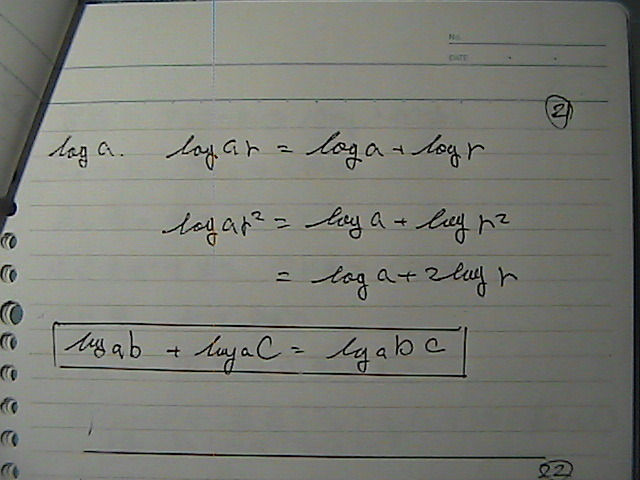 No.
DATE
21
log a. log ar = log a + log r
log ar² = log a + log r²
= log a + 2 log r
log ab + log ac = log abc
22